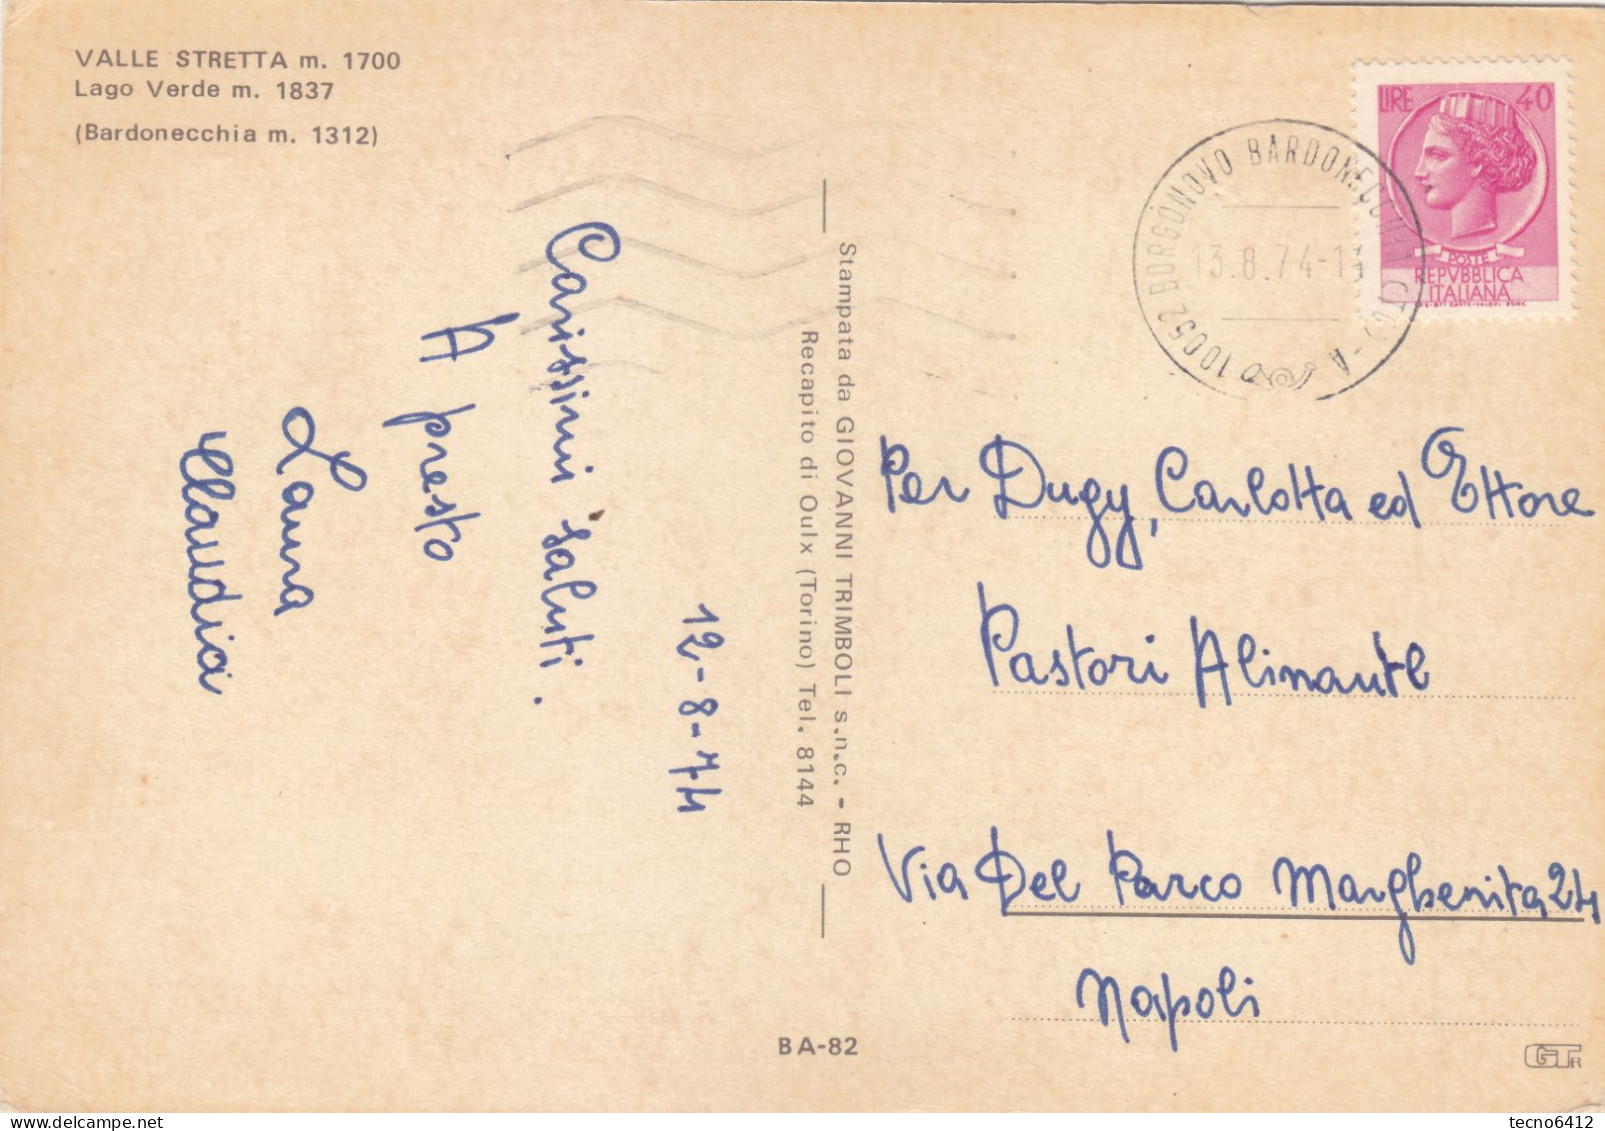 VALLE STRETTA m. 1700
Lago Verde m. 1837
(Bardonecchia m. 1312)
LIRE 40
POSTE
REPVBBLICA
ITALIANA
10052 BORGONOVO BARDONECCHIA (TO) - A
13.8.74-1
Carissimi saluti.
A presto
Laura
Claudia
12-8-74
Stampata da GIOVANNI TRIMBOLI s.n.c. - RHO
Recapito di Oulx (Torino) Tel. 8144
Per Dugy, Carlotta ed Ettore
Pastori Alimante
Via Del Parco Margherita 24
Napoli
BA-82
GTR
tecno6412